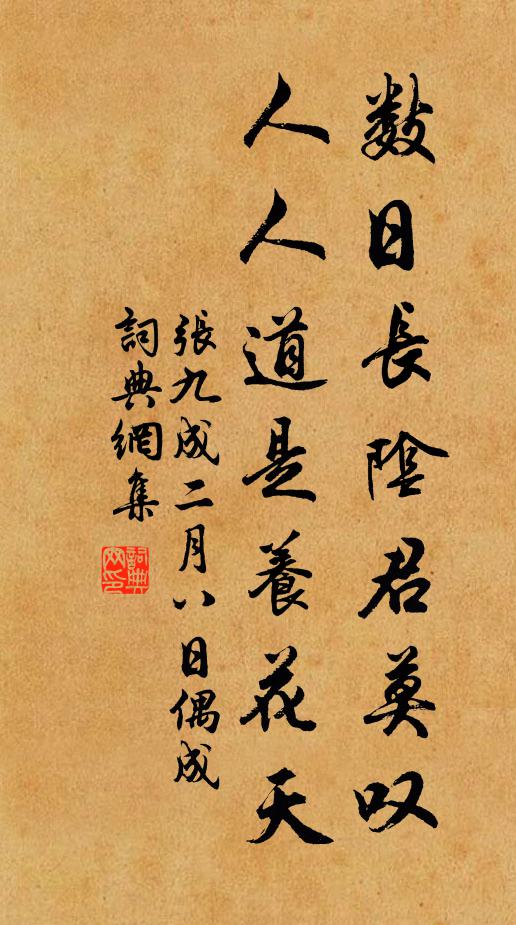 数日長陰君莫叹
人人道是養花天
張九成二月八日偶成
詞典網集
詞典网印